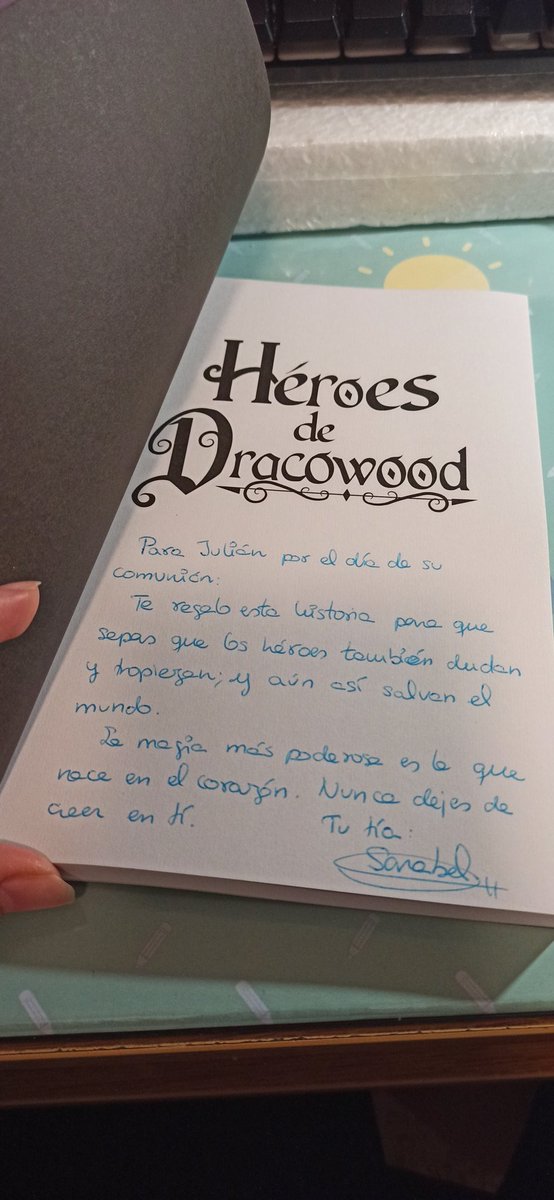 Héroes
de
Dracowood
Para Julián por el día de su
comunión:
Te regalo esta historia para que
sepas que los héroes también dudan
y tropiezan; y aún así salvan el
mundo.
La magia más poderosa es la que
nace en el corazón. Nunca dejes de
creer en tí.
Tu tía:
Sanabel